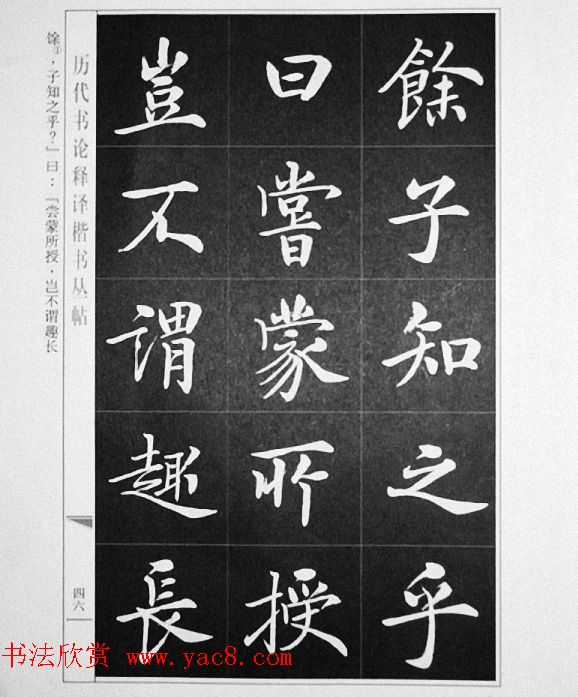 餘子知之乎
曰嘗蒙所授
豈不謂趣長
历代书论释译楷书丛帖
四六
馀①，子知之乎？」曰：「尝蒙所授，岂不谓趣长
书法欣赏 www.yac8.com